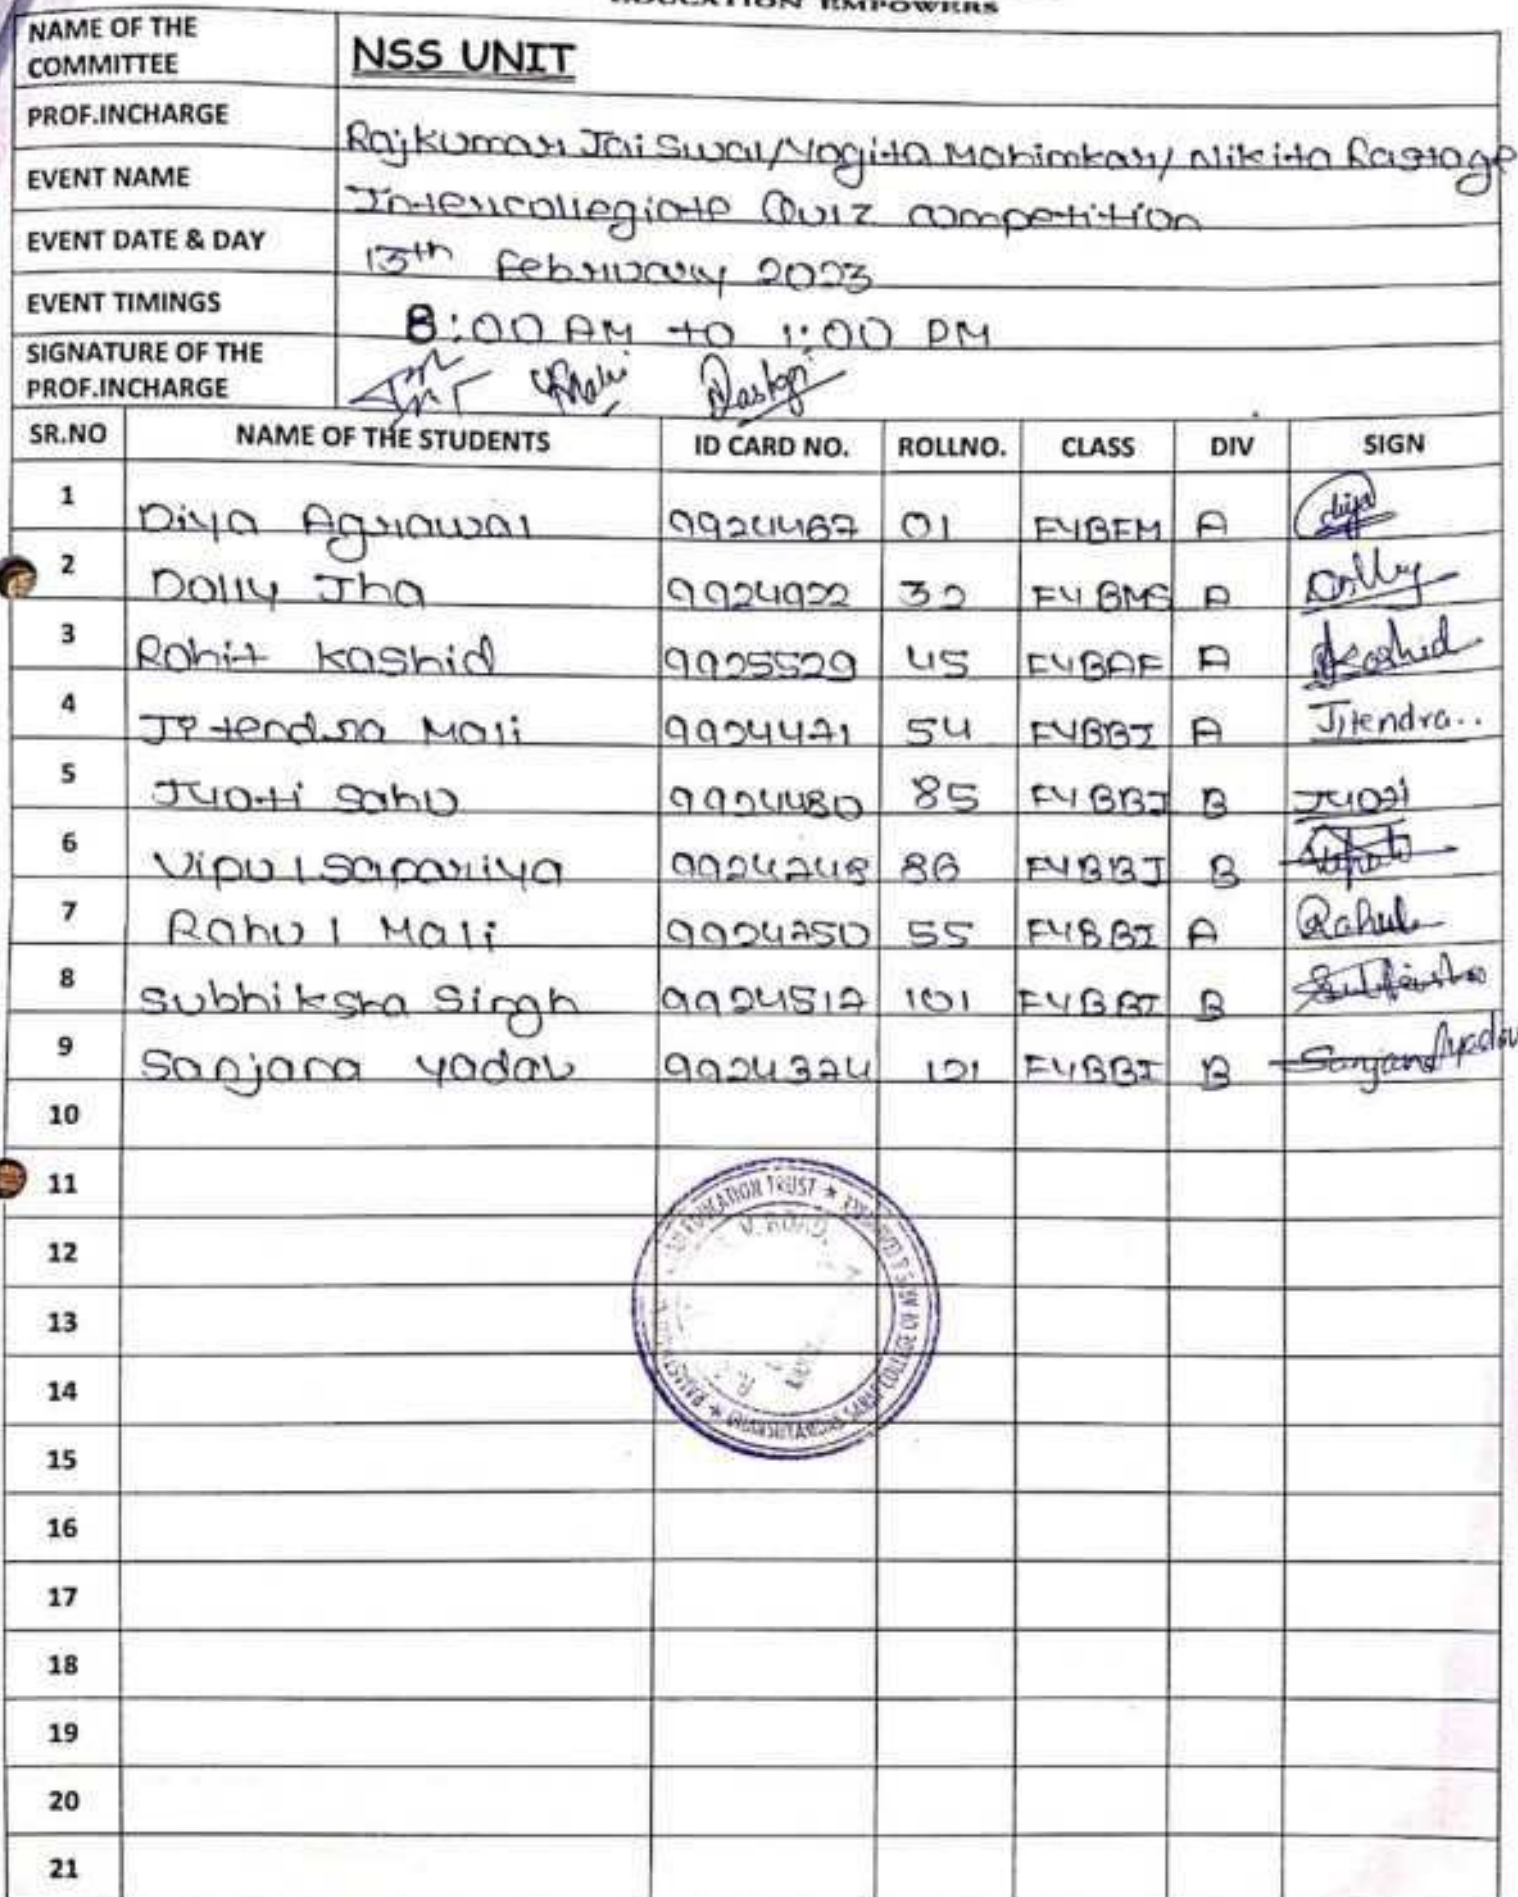 EDUCATION EMPOWERS
NAME OF THE COMMITTEE NSS UNIT
PROF.INCHARGE Rajkumar Jaiswal/Yogita Mahimkar/ Nikita Rastoge
EVENT NAME Intercollegiate Quiz competition
EVENT DATE & DAY 13th February 2023
EVENT TIMINGS 8:00 AM to 1:00 PM
SIGNATURE OF THE PROF.INCHARGE
SR.NO NAME OF THE STUDENTS ID CARD NO. ROLLNO. CLASS DIV SIGN
1 Diya Agrawal 9924467 01 FYBFM A diya
2 Dolly Jha 9924922 32 FYBMS A Dolly
3 Rohit Kashid 9925529 45 FYBAF A Kashid
4 Jitendra Mali 9924471 54 FYBBI A Jitendra..
5 Jyoti Sahu 9924480 85 FYBBI B Jyoti
6 Vipul Sapariya 9924248 86 FYBBI B
7 Rahul Mali 9924750 55 FYBBI A Rahul
8 Subhiksha Singh 9924517 101 FYBBI B
9 Sanjana Yadav 9924374 121 FYBBI B Sanjana Yadav
10
11
12
13
14
15
16
17
18
19
20
21
EDUCATION TRUST
V. ROAD.
COLLEGE OF ARTS